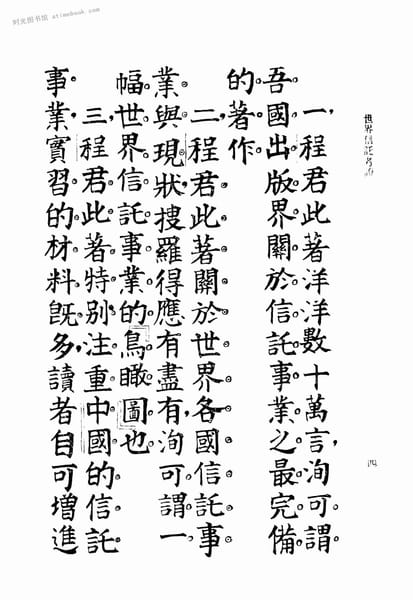 世界信託考
四
一,程君此著洋洋数十萬言,洵可謂
吾國出版界關於信託事業之最完備
的著作。
二,程君此著關於世界各國信託事
業與現狀搜羅得應有盡有,洵可謂一
幅世界信託事業的鳥瞰圖也
三,程君此著特别注重中國的信託
事業,實習的材料旣多,讀者自可增進
时光图书馆 atimebook.com